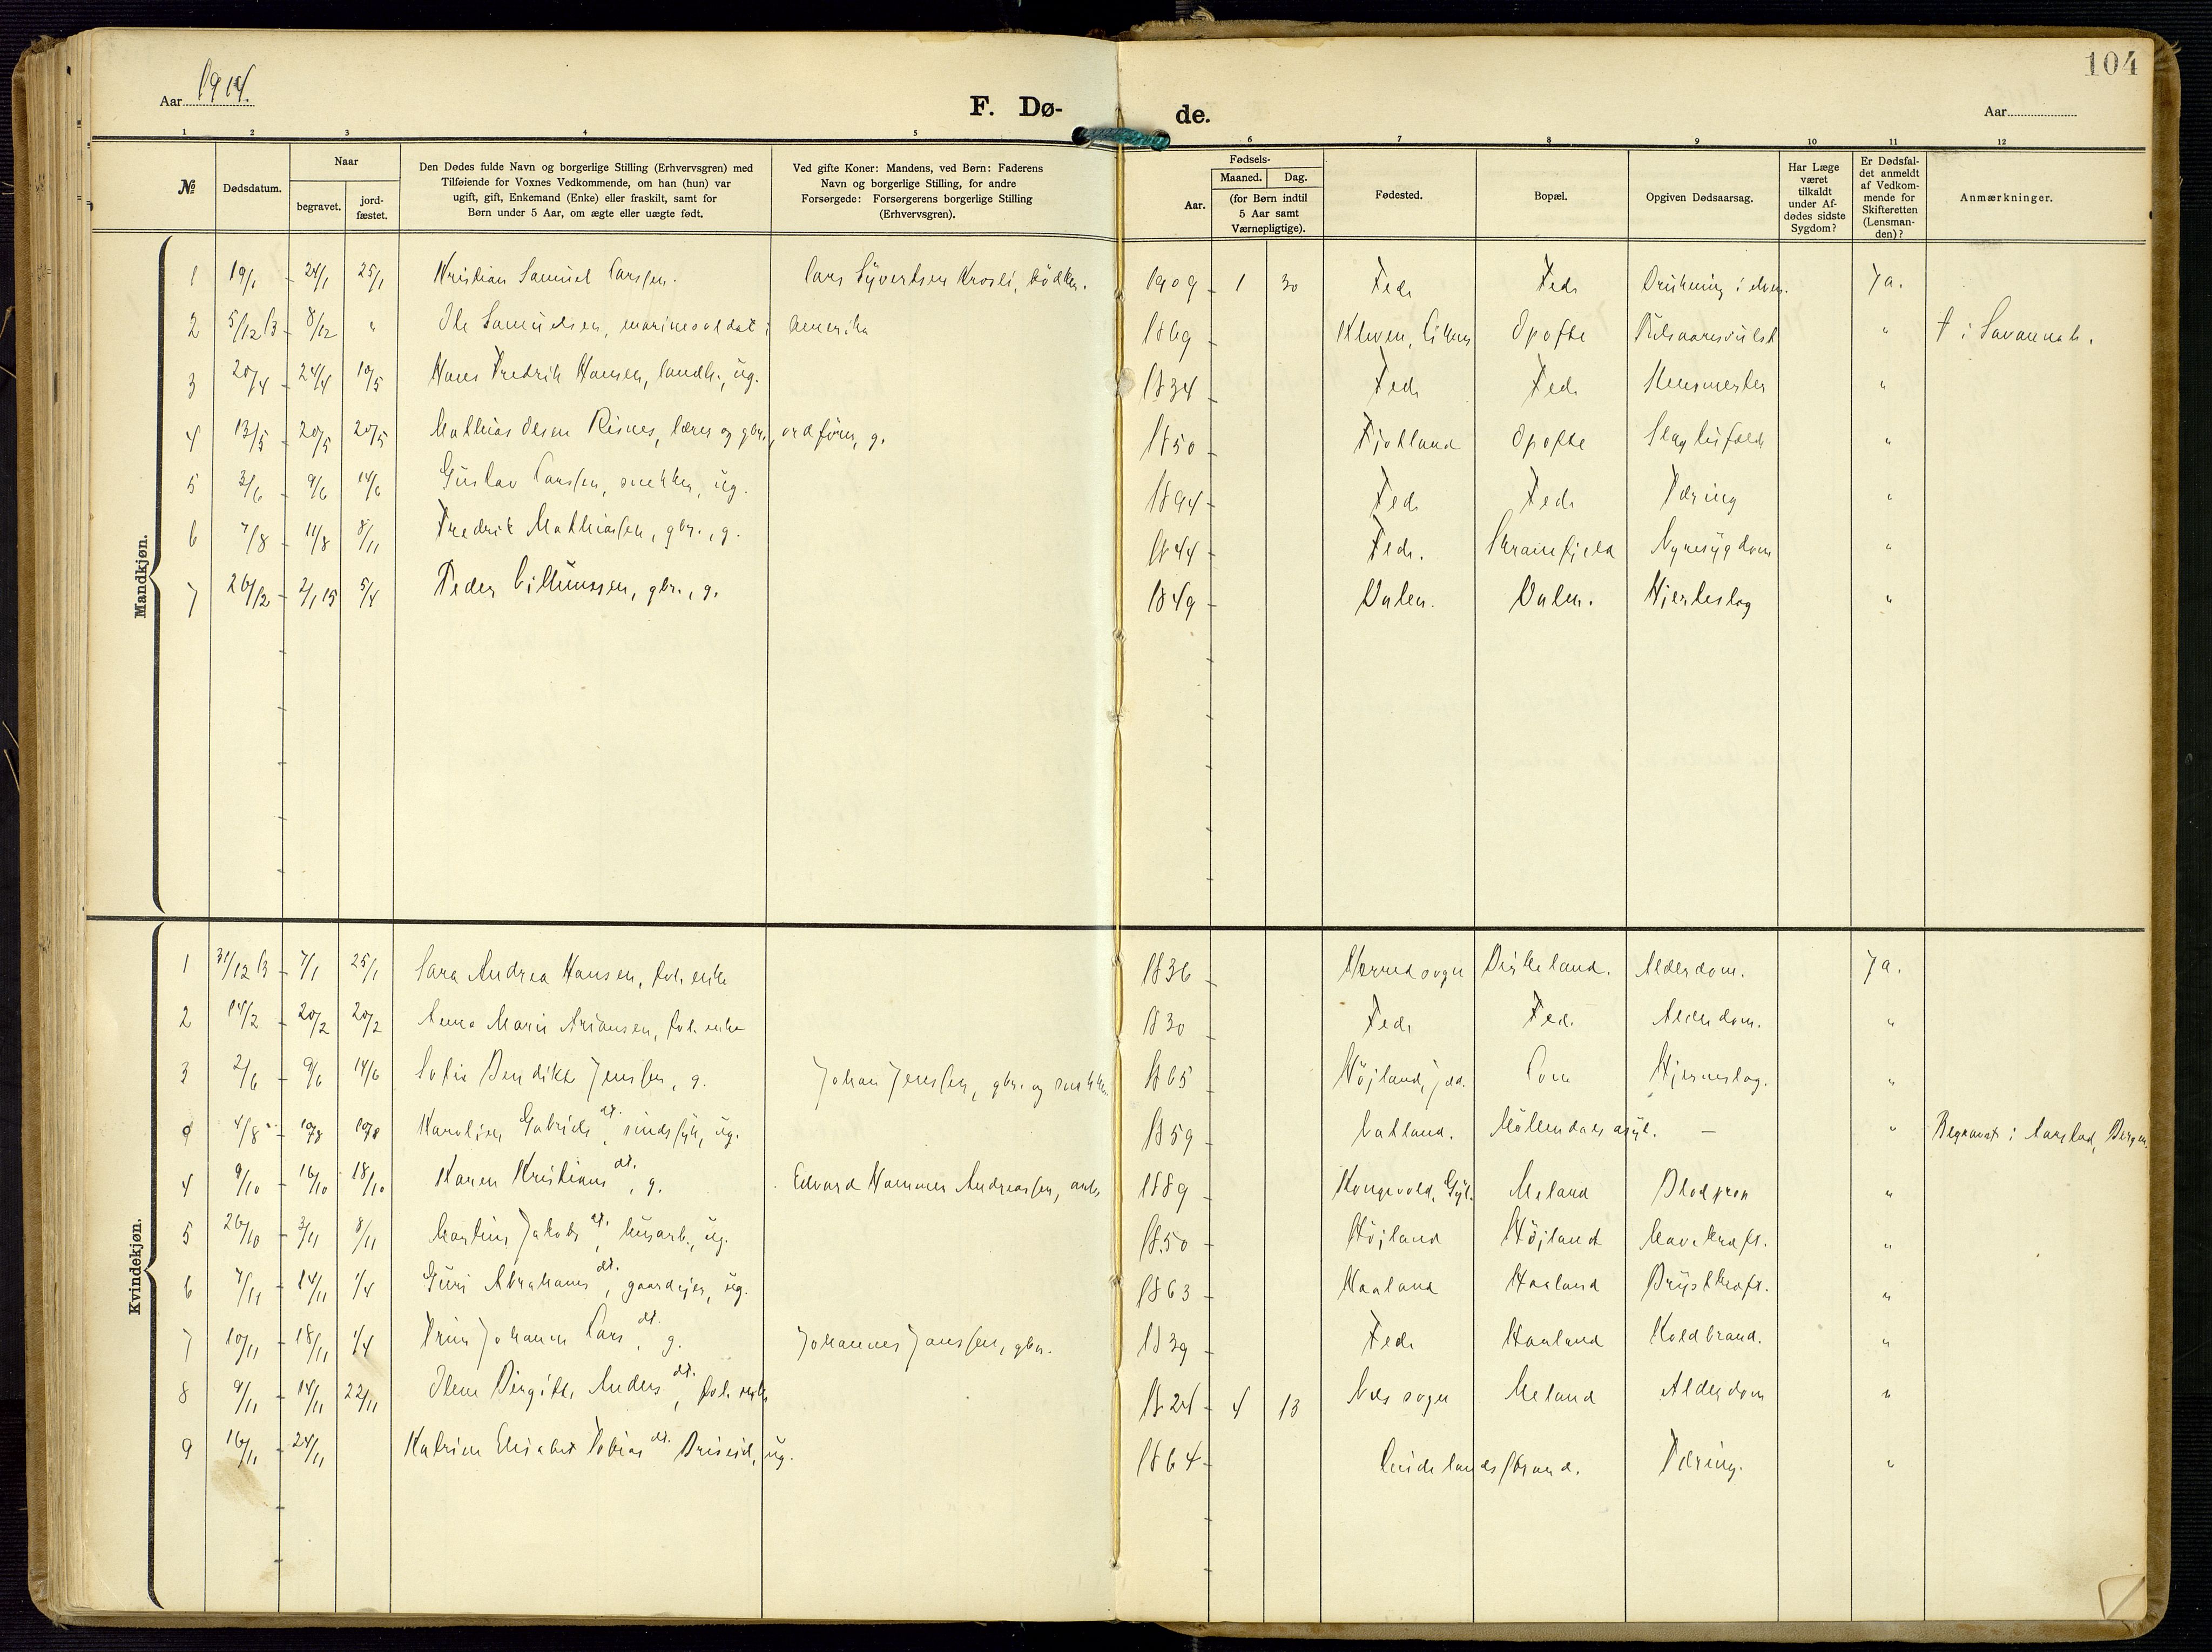 104
Aar 1914.
F. Dø-
de.
Aar
1 2 3 4 5 6 7 8 9 10 11 12
№
Dødsdatum.
Naar
begravet.
jord-
fæstet.
Den Dødes fulde Navn og borgerlige Stilling (Erhvervsgren) med
Tilføiende for Voxnes Vedkommende, om han (hun) var
ugift, gift, Enkemand (Enke) eller fraskilt, samt for
Børn under 5 Aar, om ægte eller uægte født.
Ved gifte Koner: Mandens, ved Børn: Faderens
Navn og borgerlige Stilling, for andre
Forsørgede: Forsørgerens borgerlige Stilling
(Erhvervsgren).
Fødsels-
Aar.
Maaned. Dag.
(for Børn indtil
5 Aar samt
Værnepligtige).
Fødested.
Bopæl.
Opgiven Dødsaarsag.
Har Læge
været
tilkaldt
under Af-
dødes sidste
Sygdom?
Er Dødsfal-
det anmeldt
af Vedkom-
mende for
Skifteretten
(Lensman-
den)?
Anmærkninger.
Mandkjøn.
1 19/1 24/1 25/1 Kristian Samuel Larssen. Lars Syvertsen Krosli, bödker. 1909 1 30 Feda Feda Drukning i elven. Ja.
2 5/12 13 8/12 " Ole Samuelsen, marinesoldat i Amerika 1869 Opofte " † i Savannah.
3 20/4 24/4 10/5 Hans Fredrik Hansen, ug. 1834 Feda Feda "
4 13/5 20/5 20/5 Mathias Olsen Risnes, lærer og gbr., ordförer, g. 1850 Fjotland Opofte Slagtilfælde "
5 3/6 9/6 14/6 Gustav Larssen, snekker, ug. 1894 Feda Feda Tæring "
6 7/8 11/8 8/11 Fredrik Mathiassen, gbr., g. 1844 Feda. Nyresygdom "
7 26/12 2/1 15 5/4 Peder Villumssen, gbr., g. 1849 Dalen. Dalen. Hjerteslag "
Kvindekjøn.
1 31/12 13 7/1 25/1 Sara Andrea Hansen, enke 1836 Herred sogn Birkeland. Alderdom. Ja.
2 14/2 20/2 20/2 Anna Marie Ariansen, enke 1830 Feda Feda Alderdom. "
3 2/6 9/6 14/6 Sofie Bendikte Jenssen, g. Johan Jenssen, gbr. og snekker 1865 Höjland, Hjerneslag. "
4/8 10/8 10/8 Karoline Gabriels dt., sindssyk, ug. 1859 Vatland. Möllendals asyl. — " Begravet i Aarstad, Bergen.
4 9/10 16/10 18/10 Karen Kristians dt., g. Edvard Hammer Andreassen, arb. 1889 Kongevold, Gyl. Meland Blodprop "
5 26/10 3/11 8/11 Martine Jakobs dt., husarb., ug. 1850 Höjland Höjland Mavekræft. "
6 7/11 14/11 1/4 Guri Abrahams dt., gaardejer, ug. 1863 Haaland Haaland Brystkræft. "
7 10/11 18/11 1/4 Trine Johanne Lars dt., g. Johannes Janssen, gbr. 1839 Feda Haaland Koldbrand. "
8 9/11 14/11 22/11 Birgitte Anders dt., enke 1824 4 13 Næs sogn Meland Alderdom "
9 16/11 24/11 Katrine Elisabet Tobias dt. Briseid, ug. 1864 Tæring. "